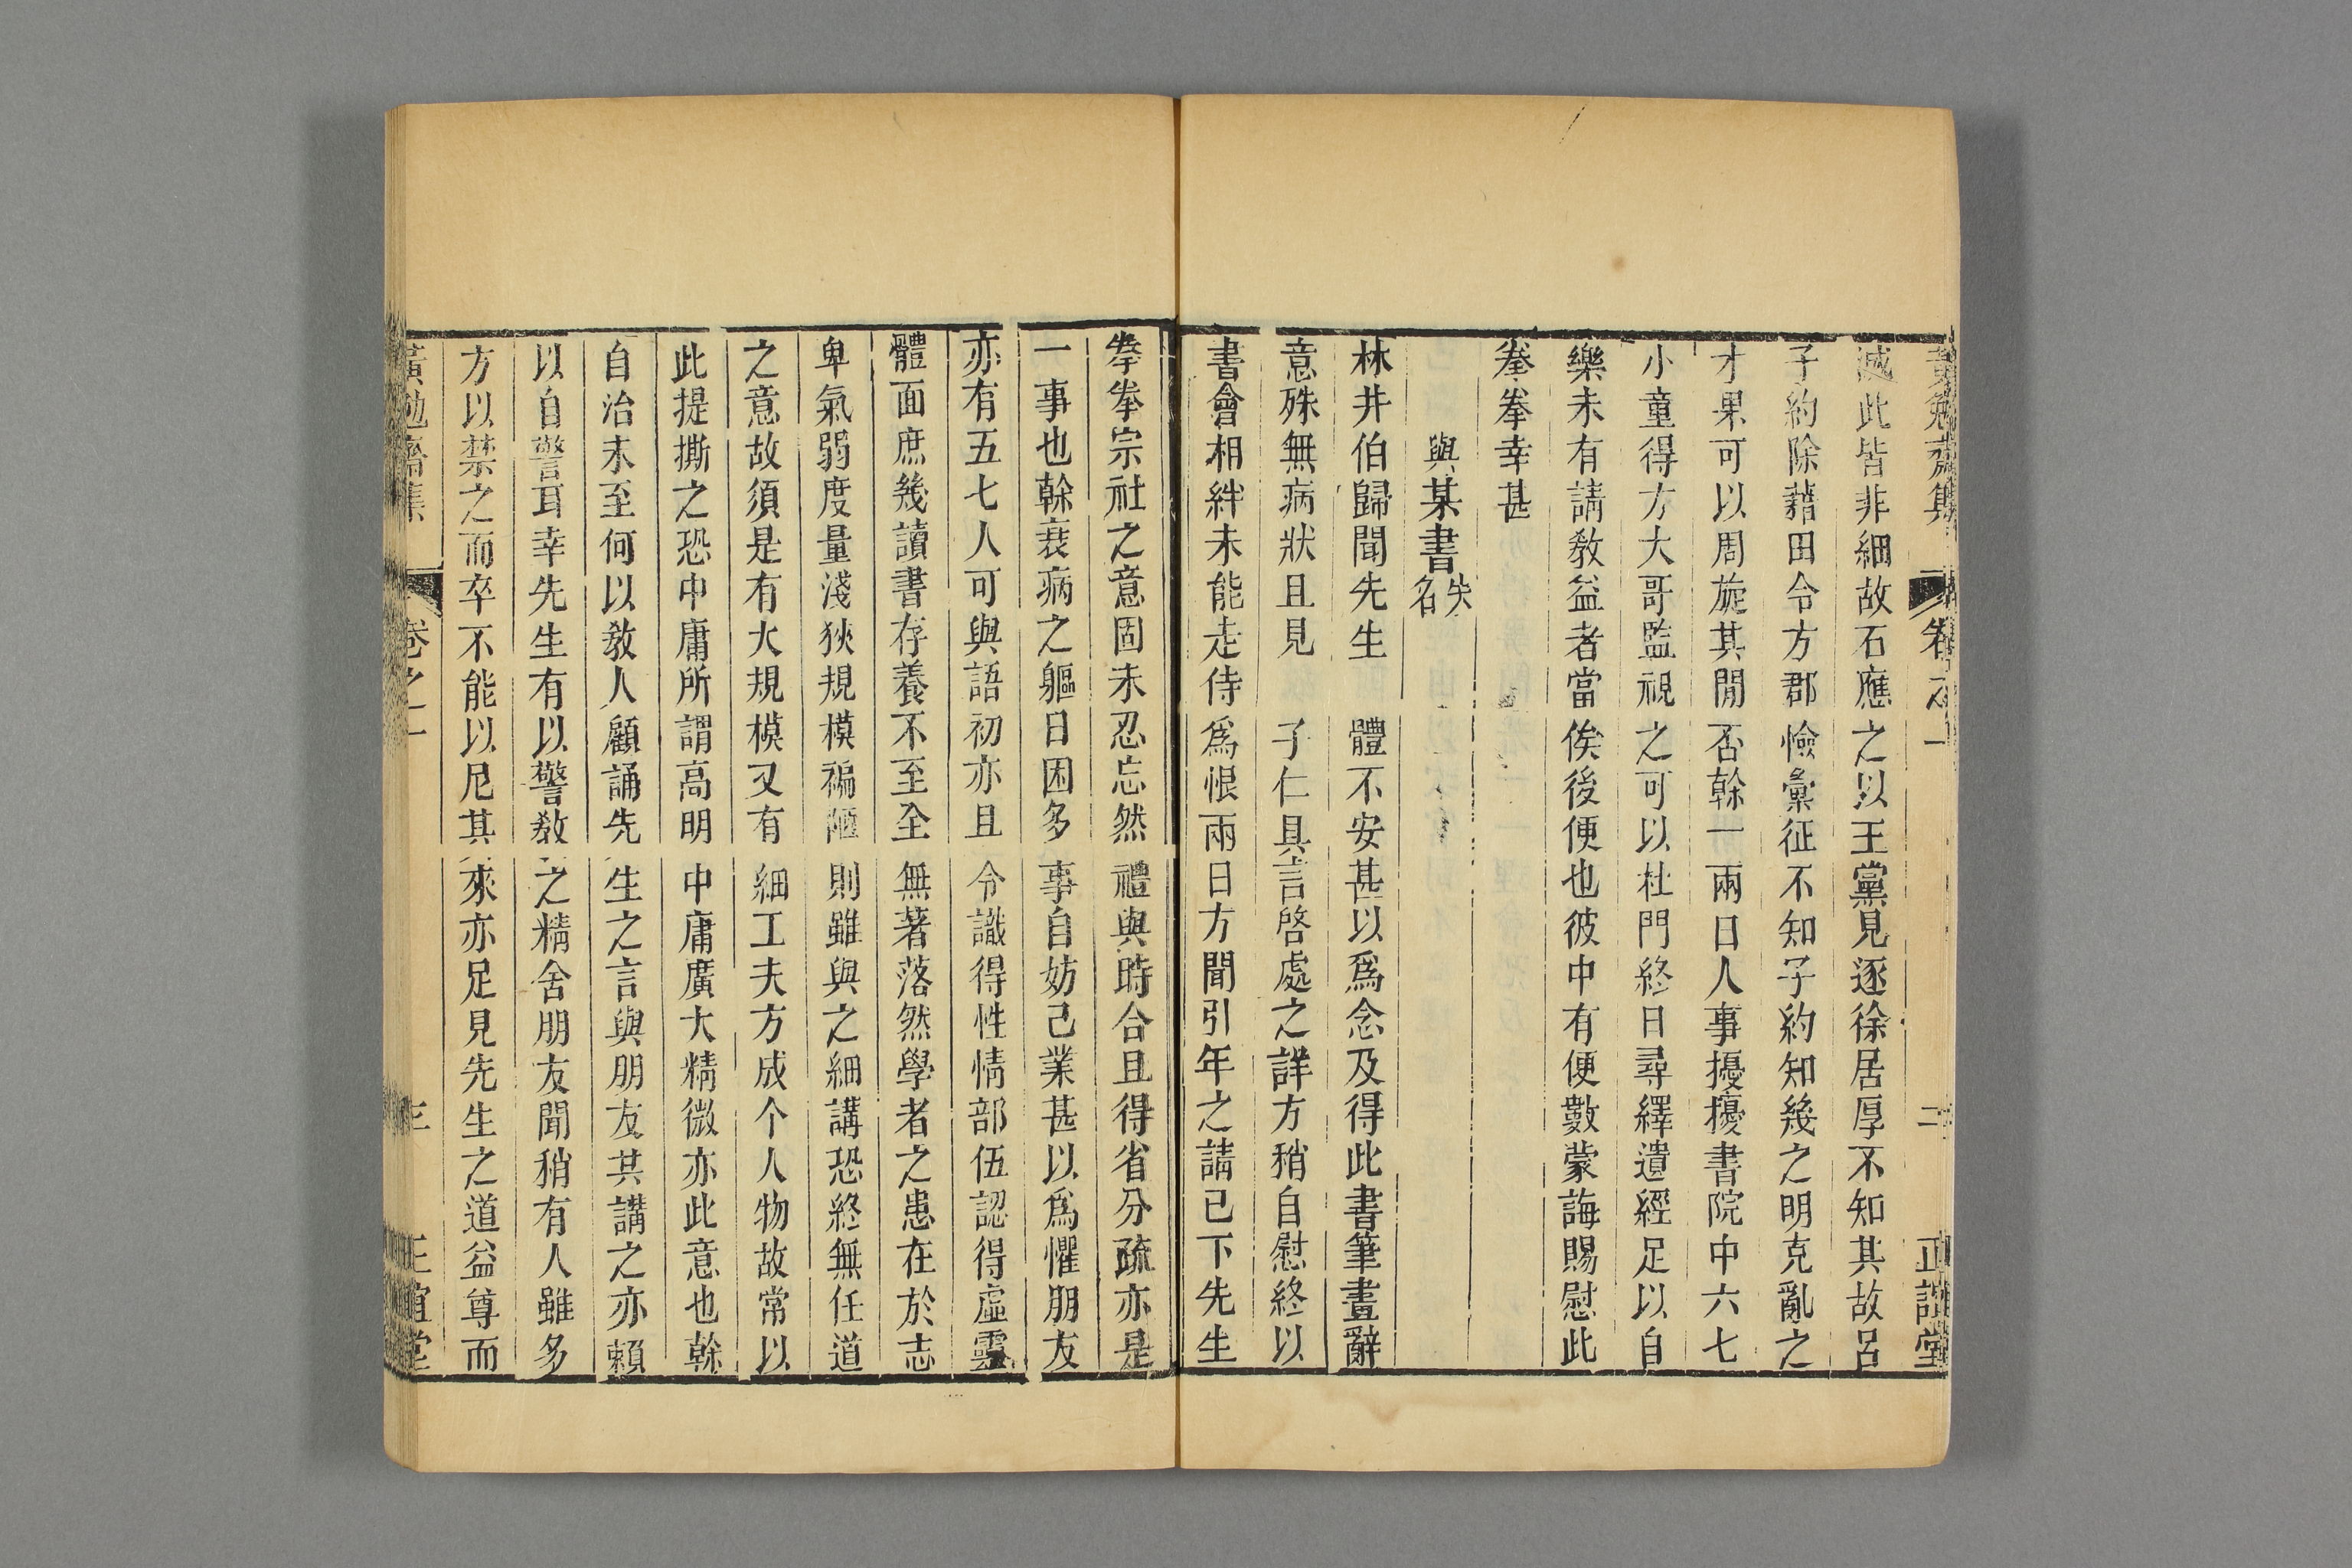 黃勉齋集 卷之一 二 正誼堂
滅此皆非細故石應之以王黨見逐徐居厚不知其故呂
子約除藉田令方郡憸彙征不知子約知幾之明克亂之
才果可以周旋其閒否幹一兩日人事擾擾書院中六七
小童得方大哥監視之可以杜門終日尋繹遺經足以自
樂未有請敎益者當俟後便也彼中有便數蒙誨賜慰此
拳拳幸甚
與某書失名
林井伯歸聞先生 體不安甚以爲念及得此書筆畫辭
意殊無病狀且見 子仁具言啓處之詳方稍自慰終以
書會相絆未能走侍爲恨兩日方聞引年之請已下先生
拳拳宗社之意固未忍忘然禮與時合且得省分疏亦是
一事也幹衰病之軀日困多事自妨己業甚以爲懼朋友
亦有五七人可與語初亦且令識得性情部伍認得虛靈
體面庶幾讀書存養不至全無著落然學者之患在於志
卑氣弱度量淺狹規模褊陋則雖與之細講恐終無任道
之意故須是有大規模又有細工夫方成个人物故常以
此提撕之恐中庸所謂高明中庸廣大精微亦此意也幹
自治未至何以敎人顧誦先生之言與朋友其講之亦賴
以自警耳幸先生有以警敎之精舍朋友聞稍有人雖多
方以禁之而卒不能以尼其來亦足見先生之道益尊而
黃勉齋集 卷之一 三 正誼堂